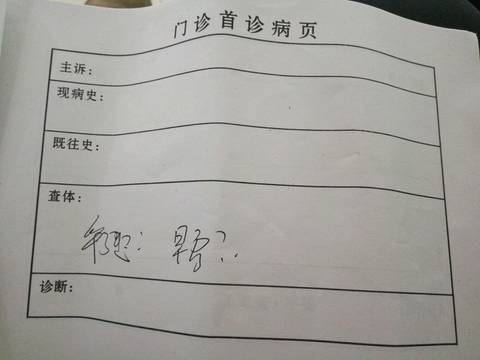 门诊首诊病页
主诉：
现病史：
既往史：
查体：
彩超：早孕？
诊断：